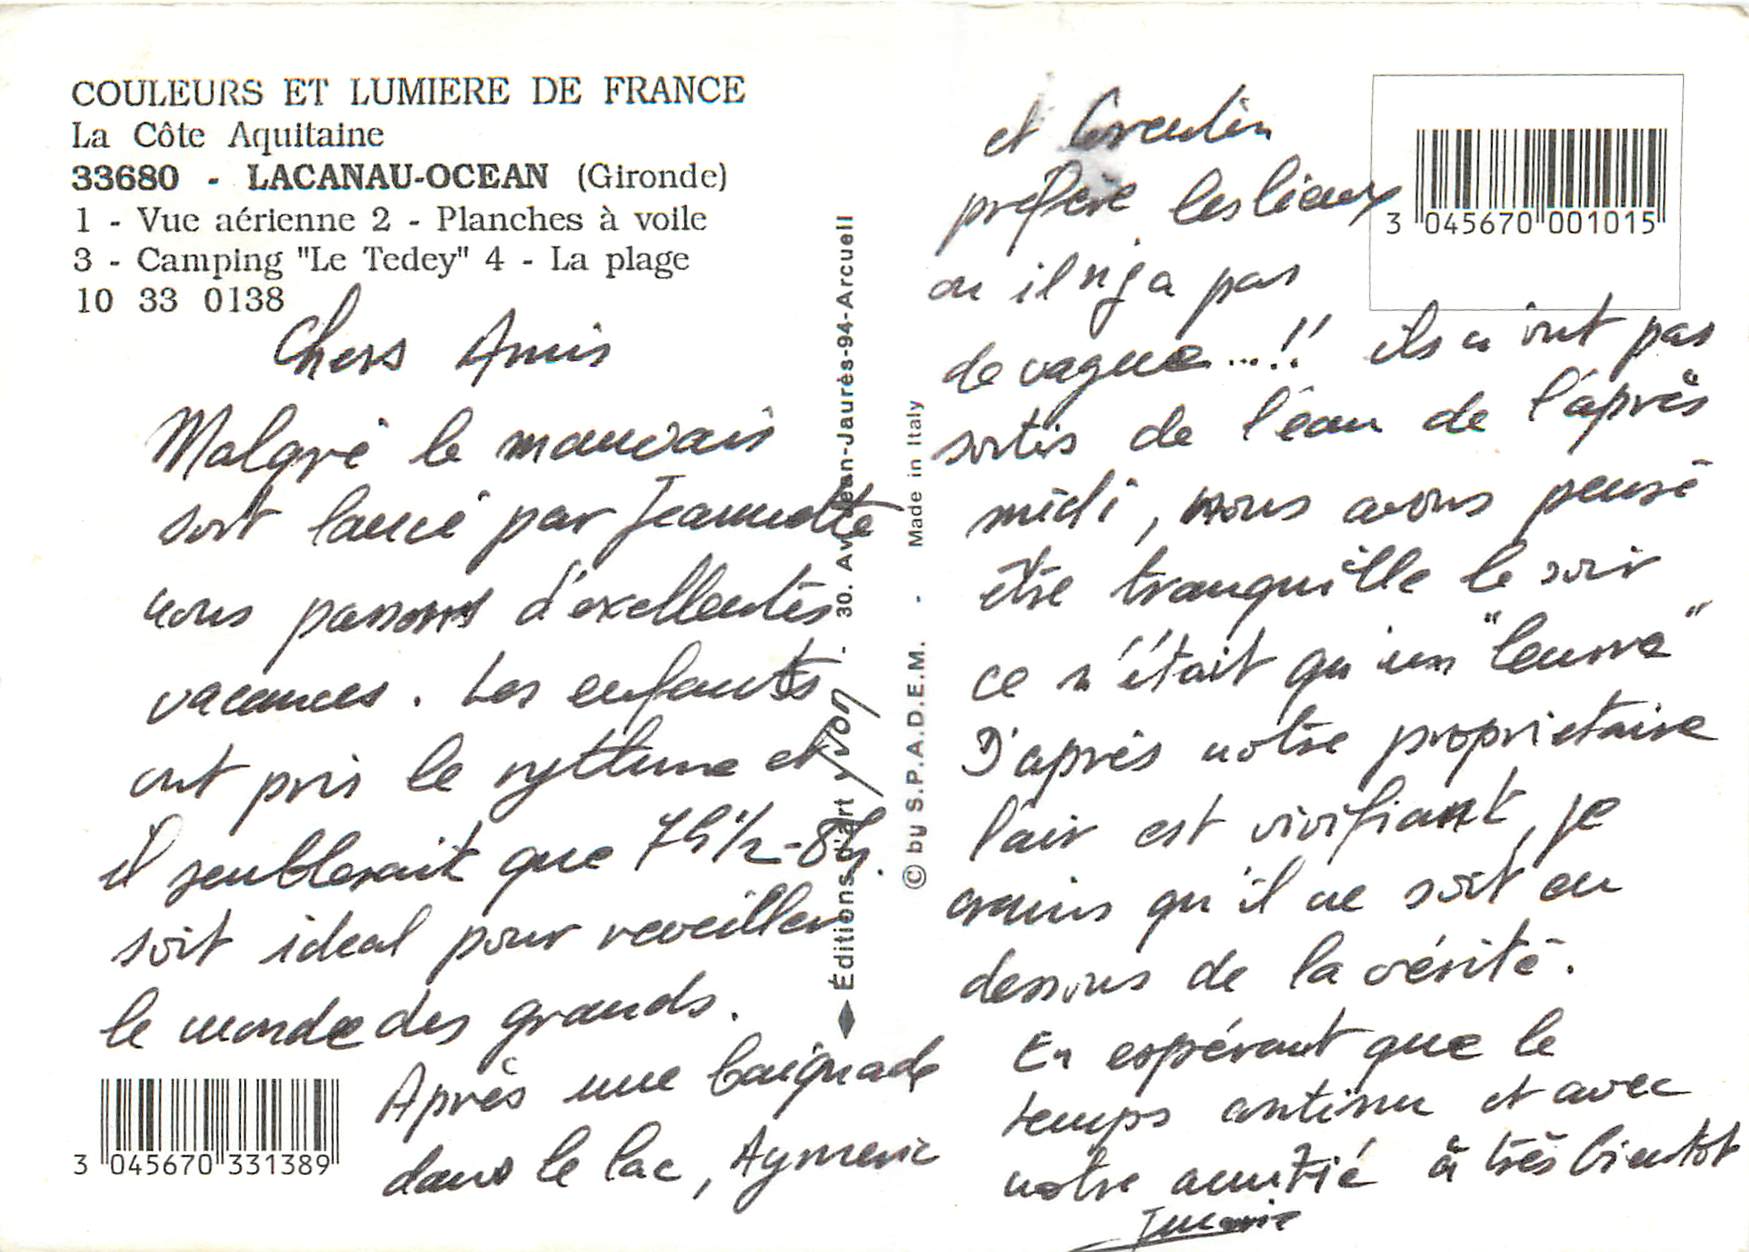 COULEURS ET LUMIERE DE FRANCE
La Côte Aquitaine
33680 - LACANAU-OCEAN (Gironde)
1 - Vue aérienne 2 - Planches à voile
3 - Camping "Le Tedey" 4 - La plage
10 33 0138
Chers Amis
Malgré le mauvais
sort lancé par Jeannette
nous passons d'excellentes
vacances. Les enfants
ont pris le rythme et
il semblerait que 7h 1/2 - 8h
soit ideal pour reveiller
le monde des grands.
Après une baignade
dans le lac, Aymeric
3 045670 331389
Éditions d'art Yvon - 30. Av. Jean-Jaurès-94-Arcueil
© by S.P.A.D.E.M. - Made in Italy
3 045670 001015
et Corentin
prefère les lieux
ou il n'y a pas
de vague...!! ils n'ont pas
sortis de l'eau de l'après
midi, nous avons pensé
être tranquille le soir
ce n'était qu'un "leurre"
D'après notre proprietaire
l'air est vivifiant, je
crains qu'il ne soit en
dessous de la vérité.
En espérant que le
temps continu et avec
notre amitié à très bientot